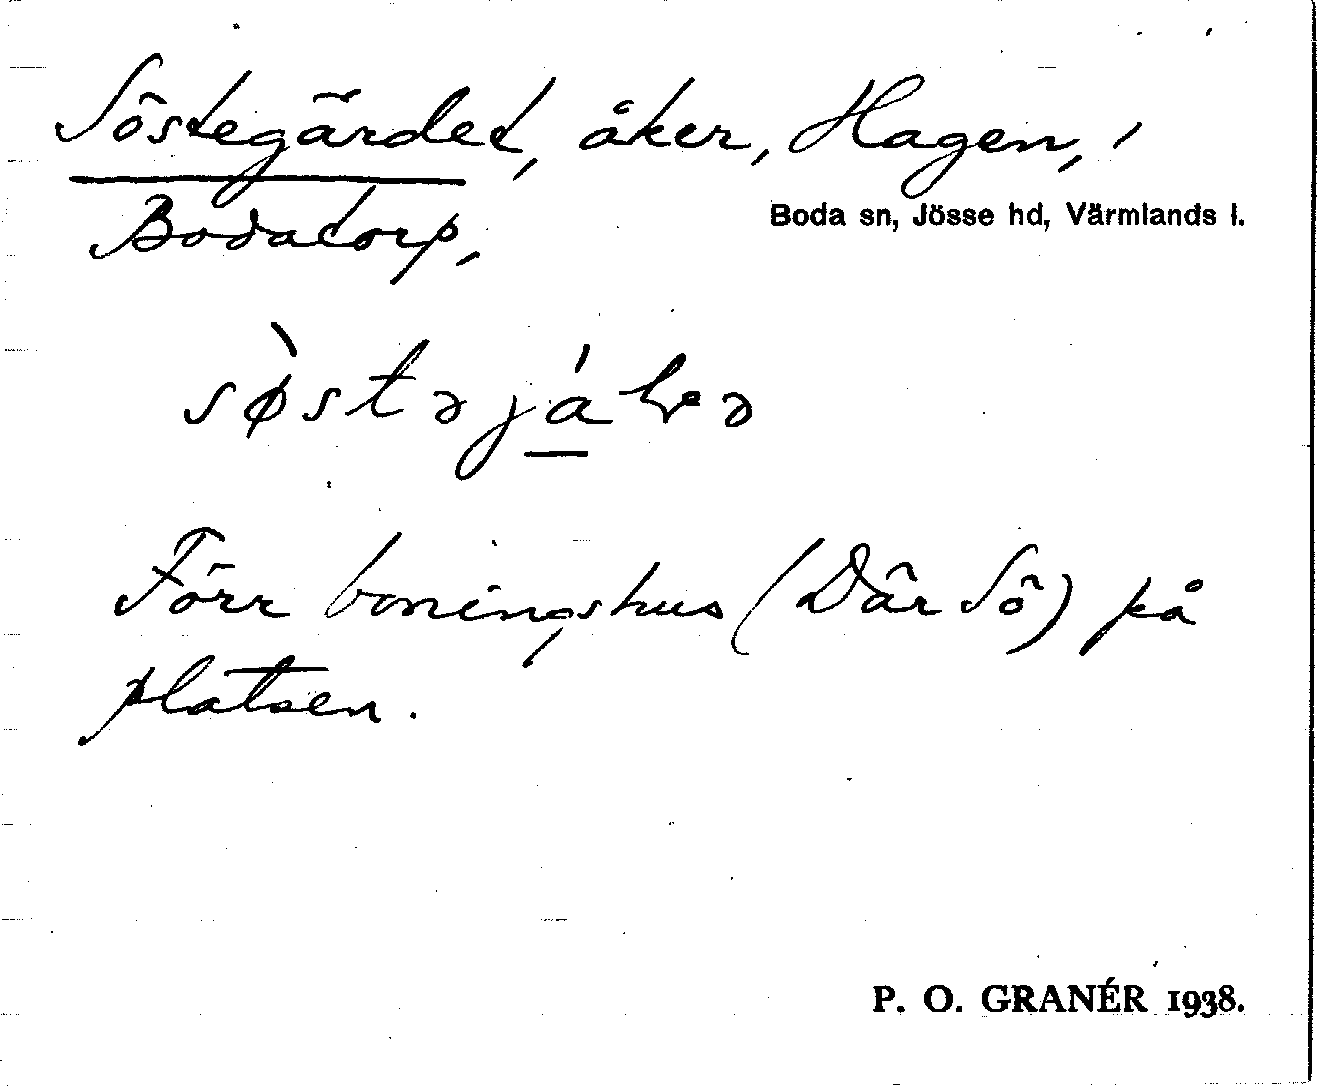 Söstegärdet, åker, Hagen,
Boda sn, Jösse hd, Värmlands l.
Bodatorp,
Förr boningshus (Där Sö) på
platsen.
P. O. GRANÉR 1938.